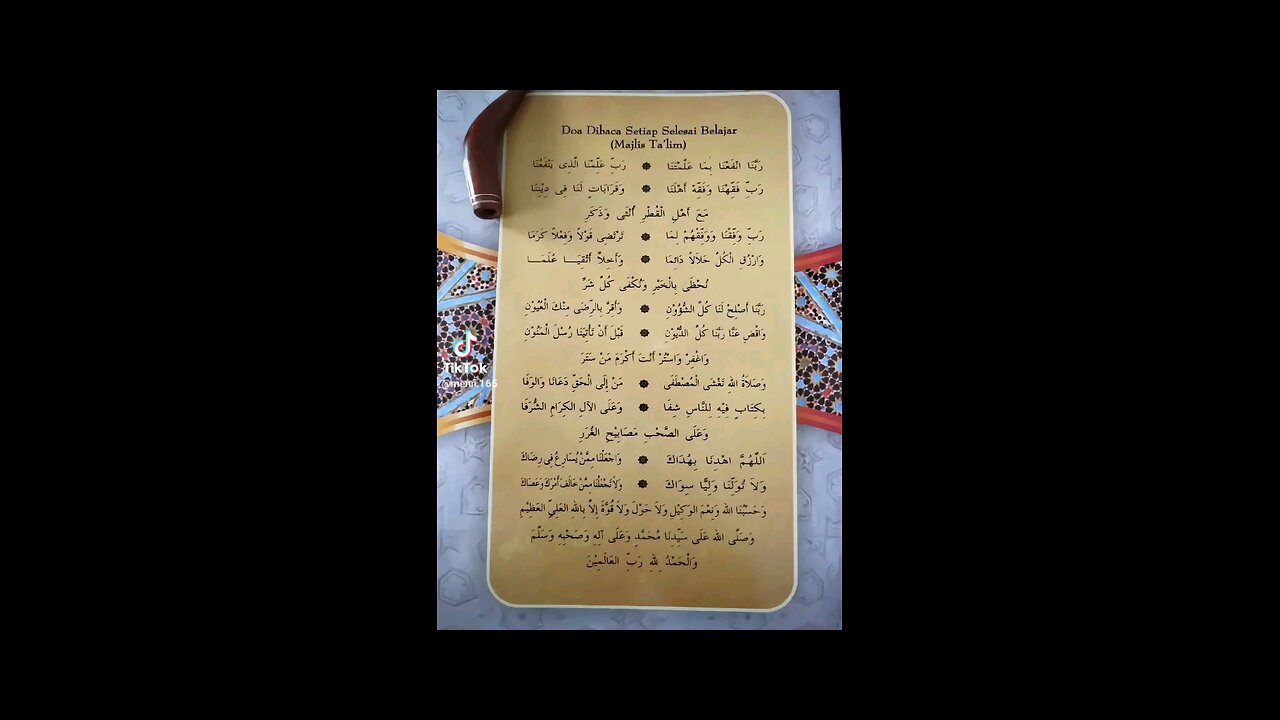 Doa Dibaca Setiap Selesai Belajar
(Majlis Ta'lim)
رَبَّنَا انْفَعْنَا بِمَا عَلَّمْتَنَا ۞ رَبِّ عَلِّمْنَا الَّذِى يَنْفَعُنَا
رَبِّ فَقِّهْنَا وَفَقِّهْ أَهْلَنَا ۞ وَقَرَابَاتٍ لَنَا فِى دِيْنِنَا
مَعَ أَهْلِ الْقُطْرِ أُنْثَى وَذَكَرِ
رَبِّ وَفِّقْنَا وَوَفِّقْهُمْ لِمَا ۞ تَرْتَضِى قَوْلاً وَفِعْلاً كَرَمَا
وَارْزُقِ الْكُلَّ حَلاَلاً دَائِمَا ۞ وَأَخِلاَّ أَتْقِيَـا عُلَمَـا
نُحْظَى بِالْخَيْرِ وَنُكْفَى كُلَّ شَرٍّ
رَبَّنَا أَصْلِحْ لَنَا كُلَّ الشُّؤُوْنِ ۞ وَأَقِرَّ بِالرِّضَى مِنْكَ الْعُيُوْنِ
وَاقْضِ عَنَّا رَبَّنَا كُلَّ الدُّيُوْنِ ۞ قَبْلَ أَنْ تَأْتِيَنَا رُسُلُ الْمَنُوْنِ
وَاغْفِرْ وَاسْتُرْ أَنْتَ أَكْرَمُ مَنْ سَتَرَ
وَصَلاَةُ اللهِ تَغْشَى الْمُصْطَفَى ۞ مَنْ إِلَى الْحَقِّ دَعَانَا وَالوَفَا
بِكِتَابٍ فِيْهِ لِلنَّاسِ شِفَا ۞ وَعَلَى الآلِ الكِرَامِ الشُّرَفَا
وَعَلَى الصَّحْبِ مَصَابِيْحِ الغُرَرِ
اَللّٰهُمَّ اهْدِنَا بِهُدَاكَ ۞ وَاجْعَلْنَا مِمَّنْ يُسَارِعُ فِى رِضَاكَ
وَلاَ تُوَلِّنَا وَلِيًّا سِوَاكَ ۞ وَلاَ تَجْعَلْنَا مِمَّنْ خَالَفَ أَمْرَكَ وَعَصَاكَ
وَحَسْبُنَا الله وَنِعْمَ الوَكِيْلِ وَلاَ حَوْلَ وَلاَ قُوَّةَ إِلاَّ بِاللهِ العَلِيِّ العَظِيْمِ
وَصَلَّى الله عَلَى سَيِّدِنَا مُحَمَّدٍ وَعَلَى آلِهِ وَصَحْبِهِ وَسَلَّمَ
وَالْحَمْدُ لِلهِ رَبِّ العَالَمِيْنَ
TikTok